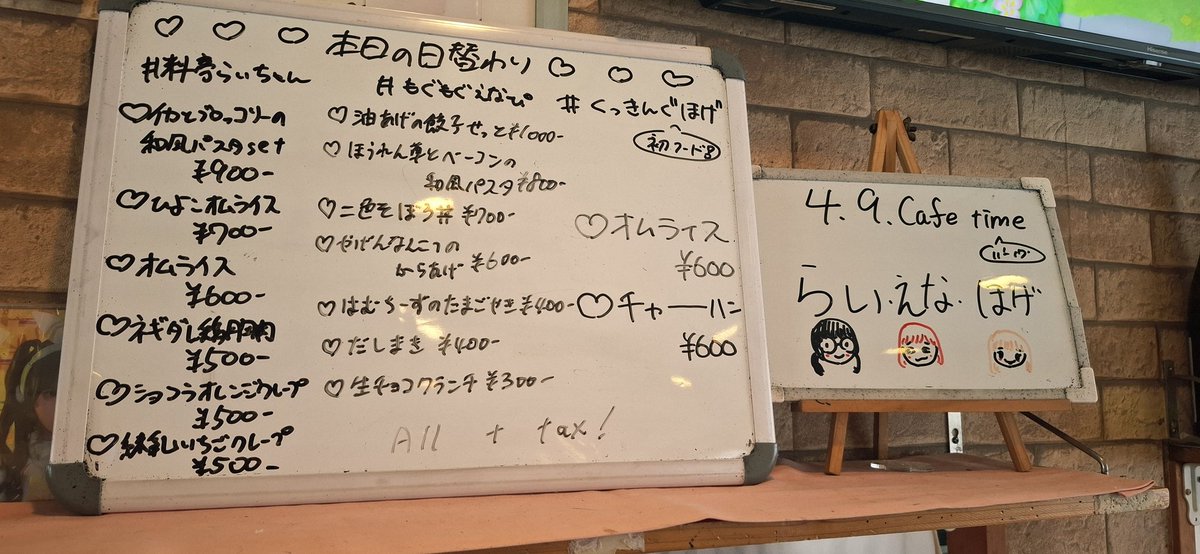 本日の日替わり
#料亭らいちゃん
♡イカとブロッコリーの
和風パスタset
¥900-
♡ひよこオムライス
¥700-
♡オムライス
¥600-
♡ネギダレ鶏
¥500-
♡ショコラオレンジクレープ
¥500-
いちごクレープ
¥500-
#もぐもぐえなぴ
♡油あげの餃子せっと¥1000-
♡ほうれん草とベーコンの
和風パスタ¥800-
♡二色そぼろ丼 ¥700-
♡やげんなんこつの
からあげ ¥600-
♡はむちーずのたまごやき¥400-
♡だしまき ¥400-
♡生チョコクランチ ¥300-
#くっきんぐほげ
初フード
♡オムライス
¥600
♡チャーハン
¥600
All + tax!
4.9. Cafe time
らい・えな・ほげ
Hisense